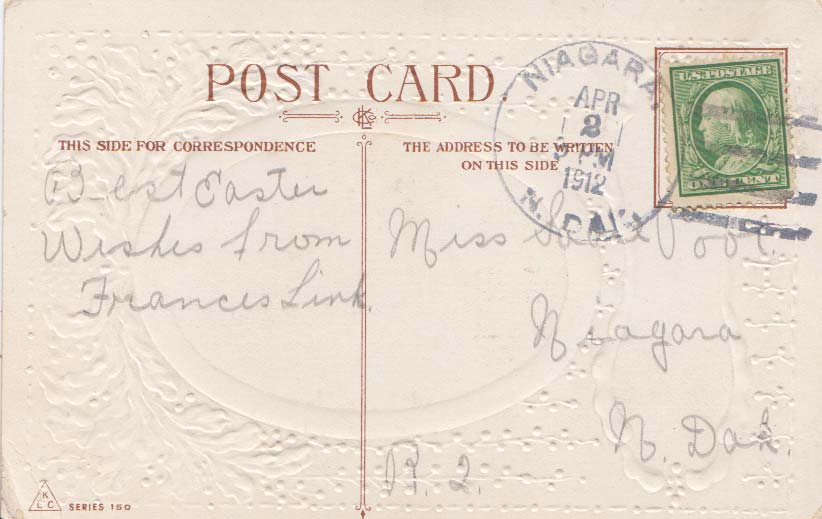 POST CARD.
KLC
THIS SIDE FOR CORRESPONDENCE
THE ADDRESS TO BE WRITTEN
ON THIS SIDE
NIAGARA,
APR
2
PM
1912
N. DAK.
U.S. POSTAGE
ONE CENT
Best Easter
Wishes from
Frances Link.
Miss Pool.
Niagara
N. Dak.
R. 2.
K
L C
SERIES 150